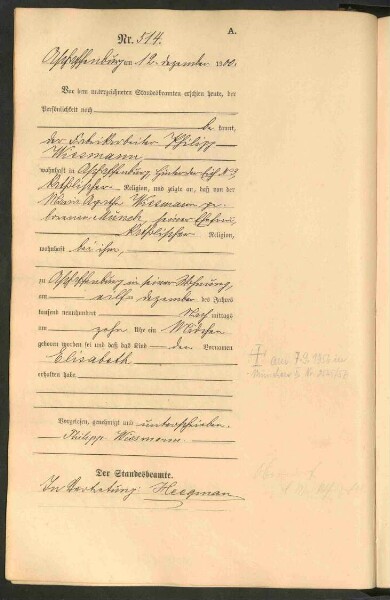 A.
Nr. 514.
Aschaffenburg am 12. Dezember 1900.
Vor dem unterzeichneten Standesbeamten erschien heute, der
Persönlichkeit nach
be kannt,
der Fabrikarbeiter Philipp
Wiesmann
wohnhaft in Aschaffenburg,
katholischer Religion, und zeigte an, daß von der
Maria Agathe Wiesmann ge-
borenen Münch, seiner Ehefrau,
katholischer Religion,
wohnhaft bei ihm,
zu Aschaffenburg in seiner Wohnung,
am elf Dezember des Jahres
tausend neunhundert Nach mittags
um zehn Uhr ein Mädchen
geboren worden sei und daß das Kind den Vornamen
Elisabeth
erhalten habe
Vorgelesen, genehmigt und unterschrieben.
Philipp Wiesmann.
Der Standesbeamte.
In Vertretung: Heegman